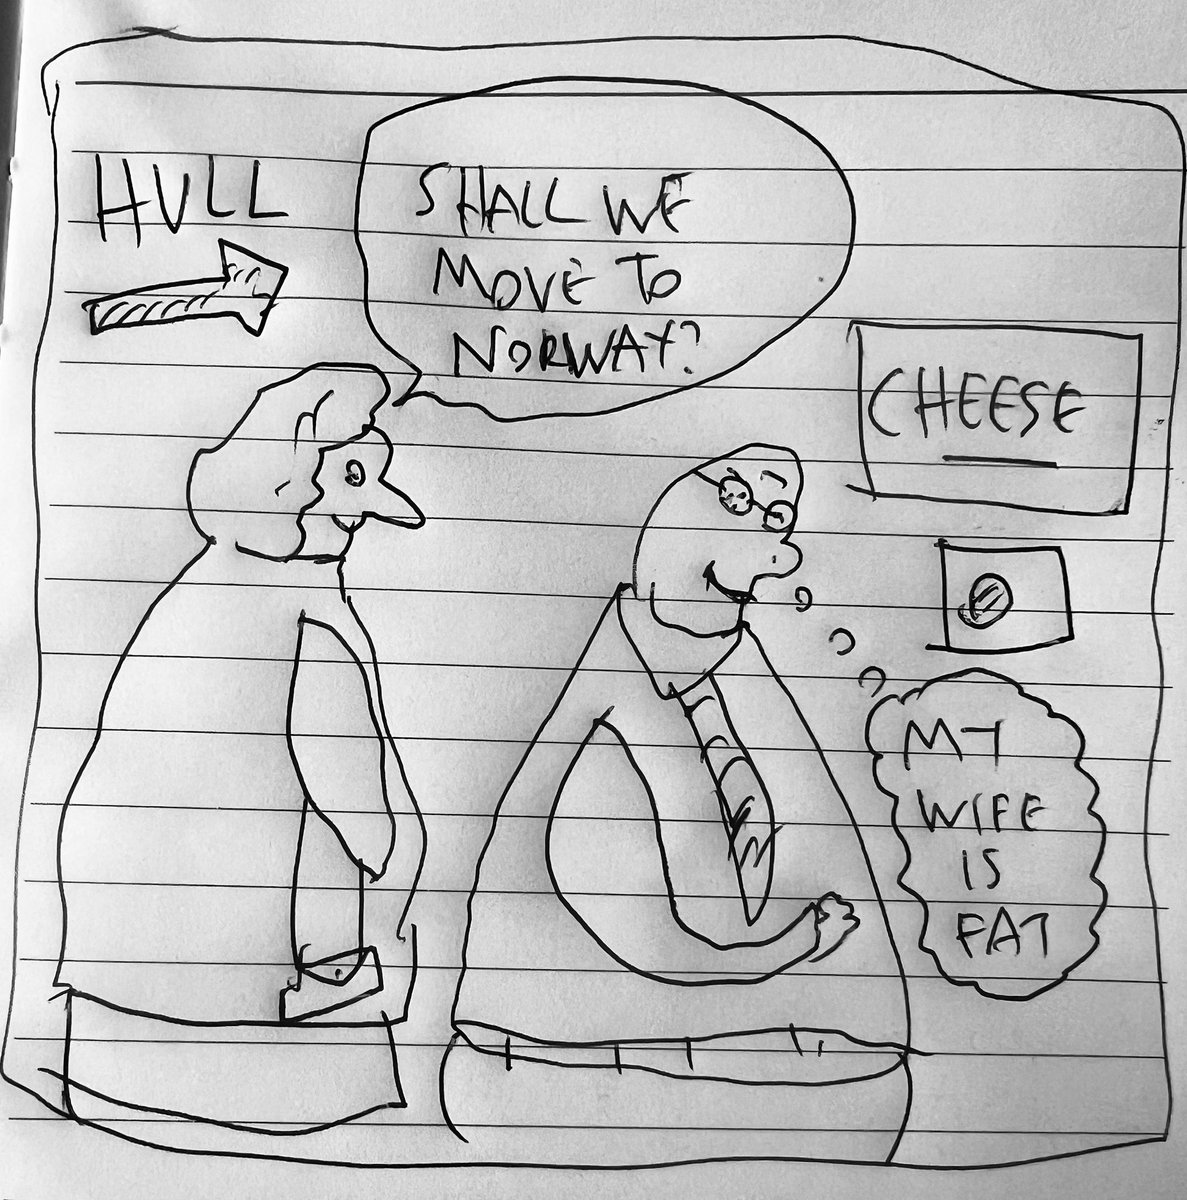 HULL
SHALL WE
MOVE TO
NORWAY?
CHEESE
MY
WIFE
IS
FAT